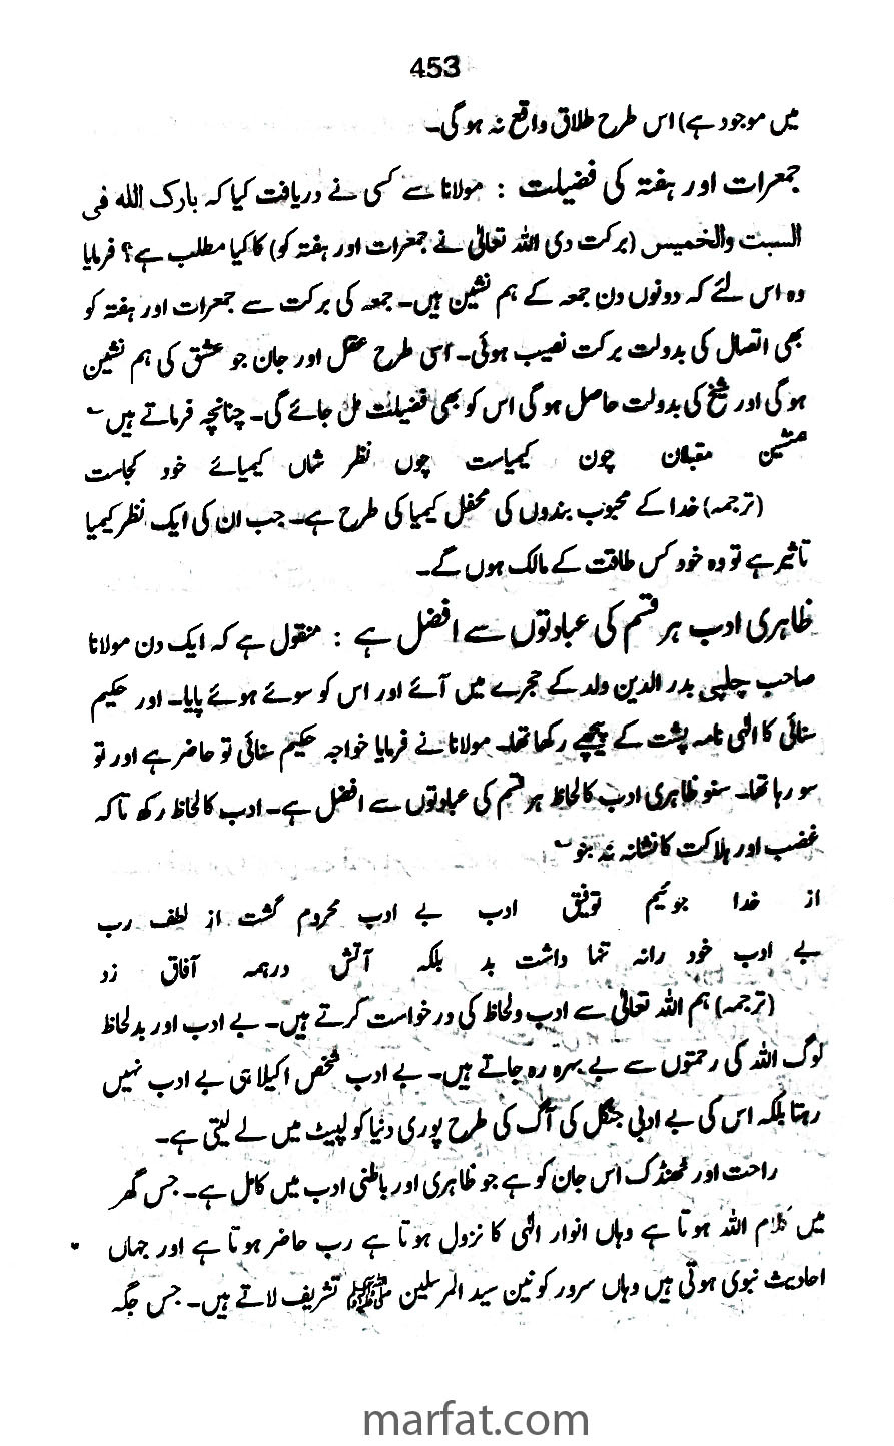 453
میں موجود ہے) اس طرح طلاق واقع نہ ہو گی۔
جمعرات اور ہفتہ کی فضیلت : مولانا سے کسی نے دریافت کیا کہ بارک اللہ فی
السبت والخمیس (برکت دی اللہ تعالیٰ نے جمعرات اور ہفتہ کو) کا کیا مطلب ہے؟ فرمایا
وہ اس لئے کہ دونوں دن جمعہ کے ہم نشین ہیں۔ جمعہ کی برکت سے جمعرات اور ہفتہ کو
بھی اتصال کی بدولت برکت نصیب ہوئی۔ اسی طرح عقل اور جان جو عشق کی ہم نشین
ہو گی اور شیخ کی بدولت حاصل ہو گی اس کو بھی فضیلت مل جائے گی۔ چنانچہ فرماتے ہیں ؎
مقبلان چون کیمیاست چوں نظر شاں کیمیائے خود کجاست
(ترجمہ) خدا کے محبوب بندوں کی محفل کیمیا کی طرح ہے۔ جب ان کی ایک نظر کیمیا
تاثیر ہے تو وہ خود کس طاقت کے مالک ہوں گے۔
ظاہری ادب ہر قسم کی عبادتوں سے افضل ہے : منقول ہے کہ ایک دن مولانا
صاحب چلپی بدر الدین ولد کے حجرے میں آئے اور اس کو سوئے ہوئے پایا۔ اور حکیم
سنائی کا الٰہی نامہ پشت کے پیچھے رکھا تھا۔ مولانا نے فرمایا خواجہ حکیم سنائی تو حاضر ہے اور تو
سو رہا تھا۔ سنو ظاہری ادب کا لحاظ ہر قسم کی عبادتوں سے افضل ہے۔ ادب کا لحاظ رکھ تاکہ
غضب اور ہلاکت کا نشانہ نہ بنو ؎
از خدا جوئیم توفیق ادب بے ادب محروم گشت از لطف رب
بے ادب خود رانہ تنہا داشت بد بلکہ آتش درہمہ آفاق زد
(ترجمہ) ہم اللہ تعالیٰ سے ادب ولحاظ کی درخواست کرتے ہیں۔ بے ادب اور بدلحاظ
لوگ اللہ کی رحمتوں سے بے بہرہ رہ جاتے ہیں۔ بے ادب شخص اکیلا ہی بے ادب نہیں
رہتا بلکہ اس کی بے ادبی جنگل کی آگ کی طرح پوری دنیا کو لپیٹ میں لے لیتی ہے۔
راحت اور ٹھنڈک اس جان کو ہے جو ظاہری اور باطنی ادب میں کامل ہے۔ جس گھر
میں کلام اللہ ہوتا ہے وہاں انوار الٰہی کا نزول ہوتا ہے رب حاضر ہوتا ہے اور جہاں
احادیث نبوی ہوتی ہیں وہاں سرور کونین سید المرسلین ﷺ تشریف لاتے ہیں۔ جس جگہ
marfat.com